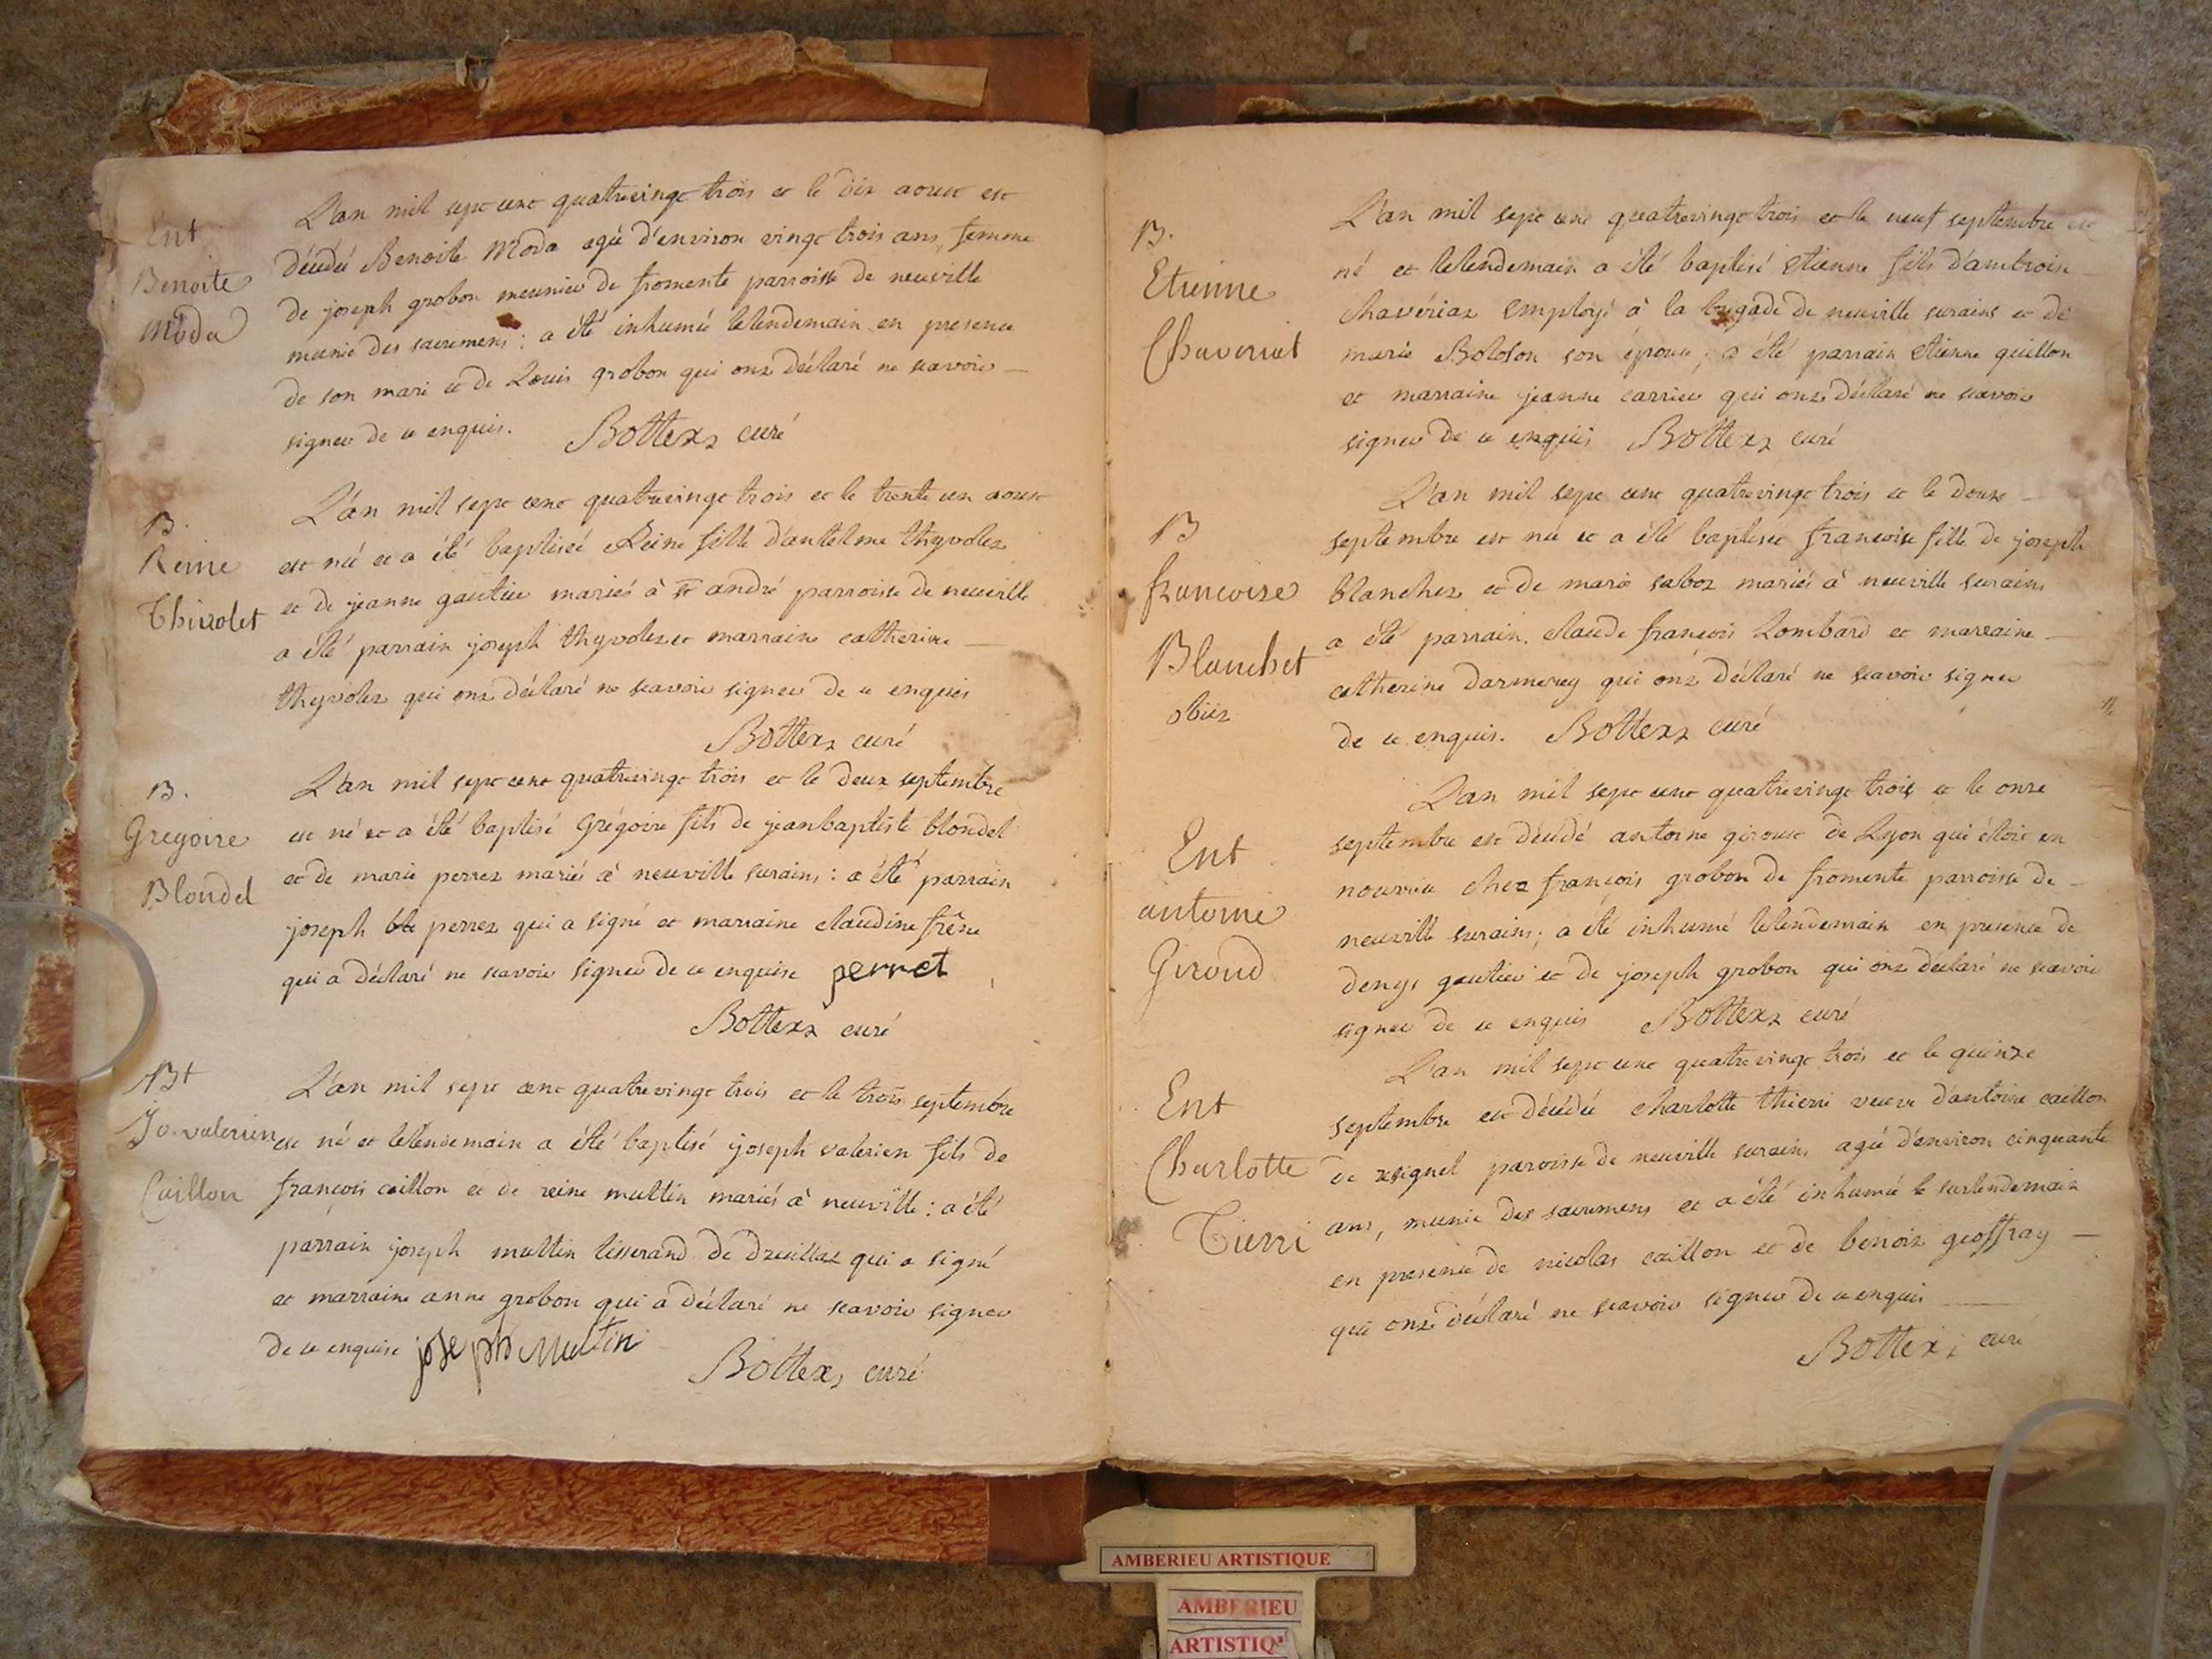 Ent
Benoite
Moda
L'an mil sept cent quatrevingt trois et le dix aoust est
décédée Benoite Moda agée d'environ vingt trois ans, femme
de joseph grobon meunier de fromente parroisse de neuville
munie des sacremens ; a été inhumée le lendemain en presence
de son mari et de Louis grobon qui ont déclaré ne scavoir
signer de ce enquis. Bottex curé
B.
Reine
Thivolet
L'an mil sept cent quatrevingt trois et le trente un aoust
est née et a été baptisée Reine fille d'antelme thyvolet
et de jeanne gautier mariés à st andré parroisse de neuville
a été parrain joseph thyvolet et marraine catherine
thyvolet qui ont déclaré ne scavoir signer de ce enquis
Bottex curé
B.
Gregoire
Blondel
L'an mil sept cent quatrevingt trois et le deux septembre
est né et a été baptisé Grégoire fils de jeanbaptiste blondel
et de marie perret mariés à neuville surains : a été parrain
joseph perret qui a signé et marraine claudine frêne
qui a déclaré ne scavoir signer de ce enquise perret
Bottex curé
Bt
Jo. valerien
Caillon
L'an mil sept cent quatrevingt trois et le trois septembre
est né et le lendemain a été baptisé joseph valerien fils de
françois caillon et de reine multin mariés à neuville : a été
parrain joseph multin tisserand de druillat qui a signé
et marraine anne grobon qui a déclaré ne scavoir signer
de ce enquise joseph Multin
Bottex curé
B.
Etienne
Chaveriat
L'an mil sept cent quatrevingt trois et le neuf septembre est
né et le lendemain a été baptisé Etienne fils d'ambroise
chavériat Employé à la brigade de neuville surains et de
marie Boloson son épouse ; a été parrain Etienne guillon
et marraine jeanne carrier qui ont déclaré ne scavoir
signer de ce enquis Bottex curé
B
francoise
Blanchet
obiit
L'an mil sept cent quatrevingt trois et le douze
septembre est née et a été baptisée francoise fille de joseph
blanchet et de marie sabot mariés à neuville surains
a été parrain claude francois Lombard et marraine
catherine darmerey qui ont déclaré ne scavoir signer
de ce enquis. Bottex curé
Ent
antoine
Giroud
L'an mil sept cent quatrevingt trois et le onze
septembre est décédé antoine giroust de Lyon qui étoit en
nourrice chez françois grobon de fromente parroisse de
neuville surains ; a été inhumé le lendemain en présence de
denys gautier et de joseph grobon qui ont déclaré ne scavoir
signer de ce enquis Bottex curé
Ent
Charlotte
Tierri
L'an mil sept cent quatrevingt trois et le quinze
septembre est décédée charlotte thierri veuve d'antoine caillon
de resignel paroisse de neuville surains agée d'environ cinquante
ans, munie des sacremens et a été inhumée le surlendemain
en presence de nicolas caillon et de benoit geoffray
qui ont déclaré ne scavoir signer de ce enquis
Bottex curé
AMBERIEU ARTISTIQUE
AMBERIEU
ARTISTIQ